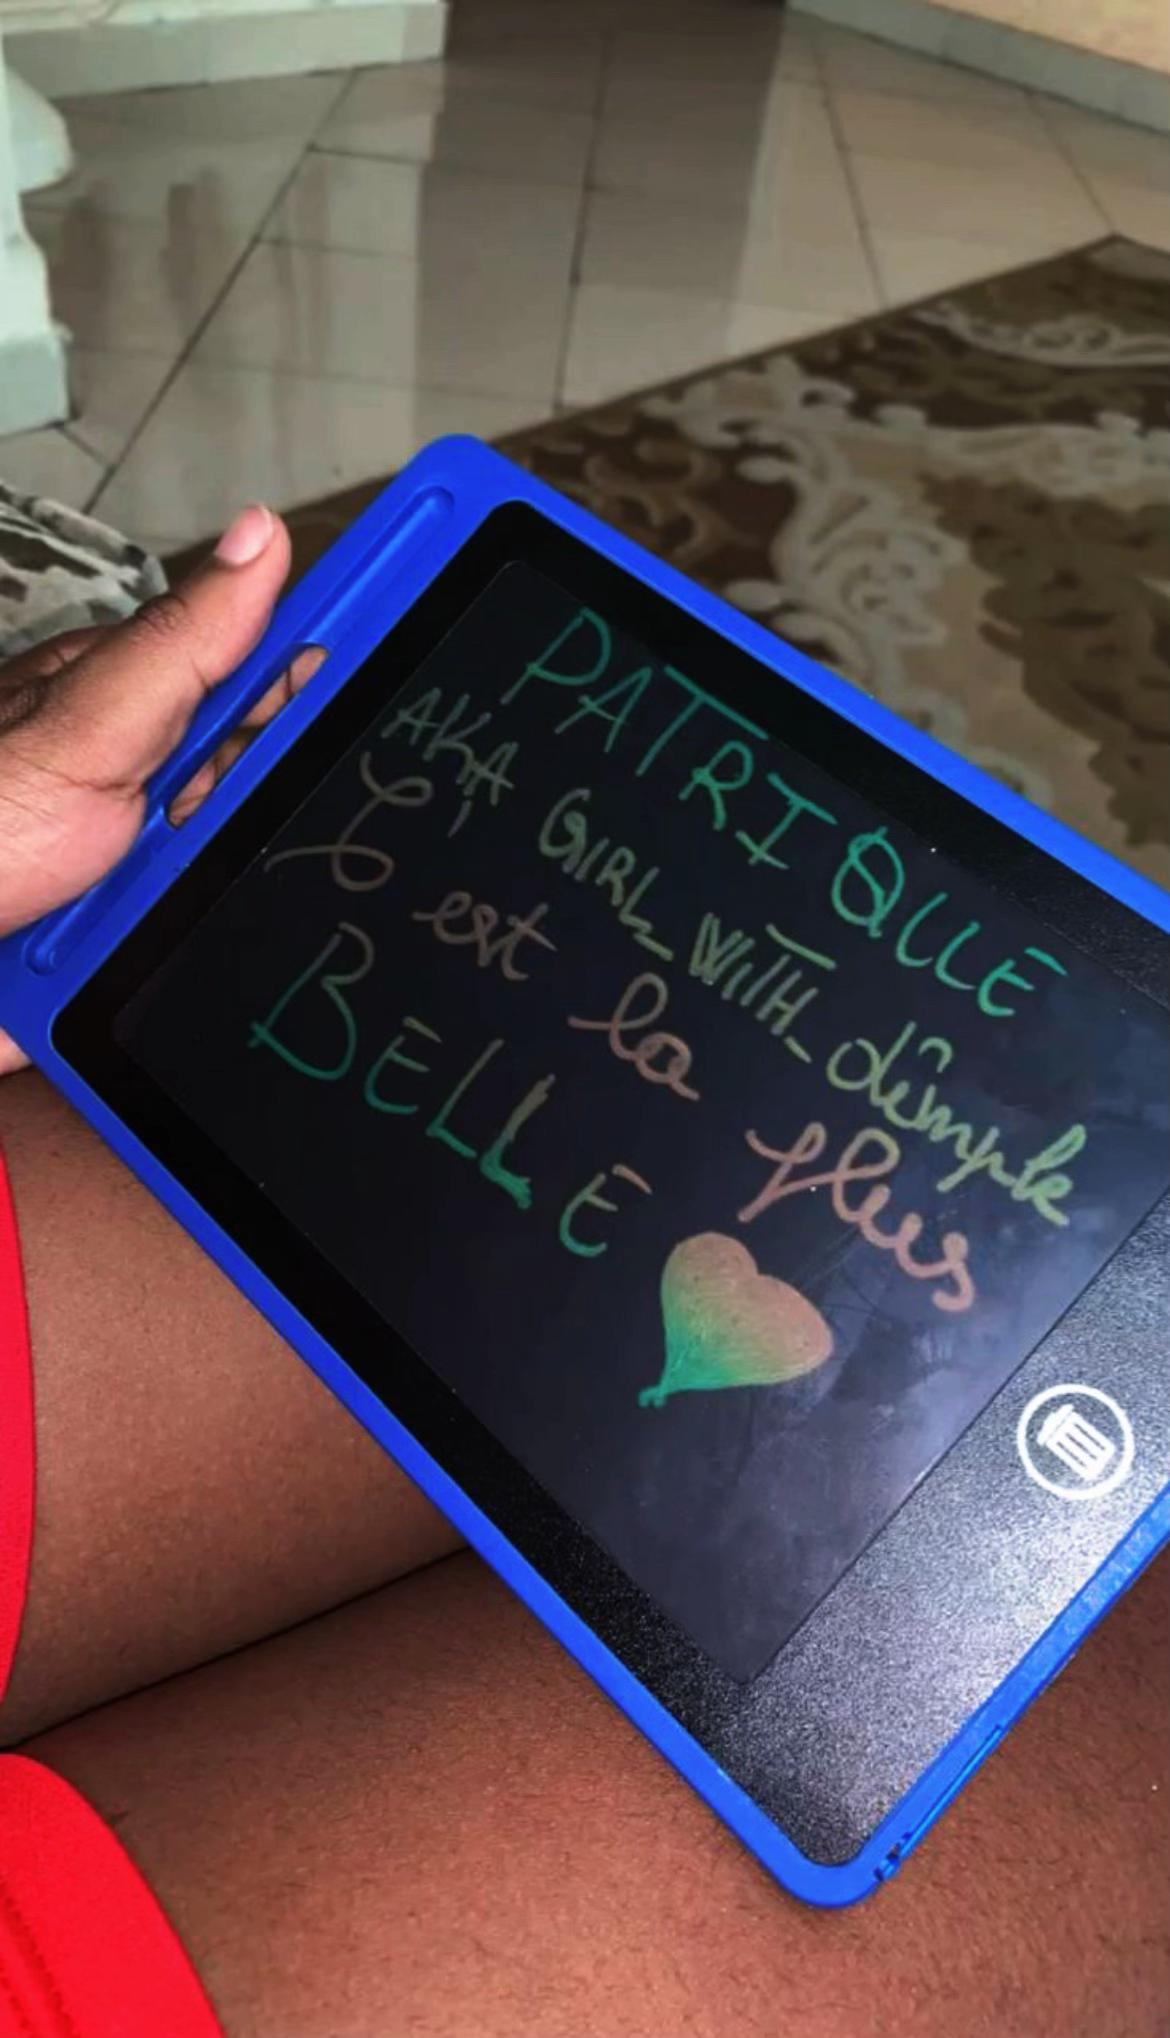 PATRIQUE
AKA, GIRL_WITH_dîmple
C est la plus
BELLE